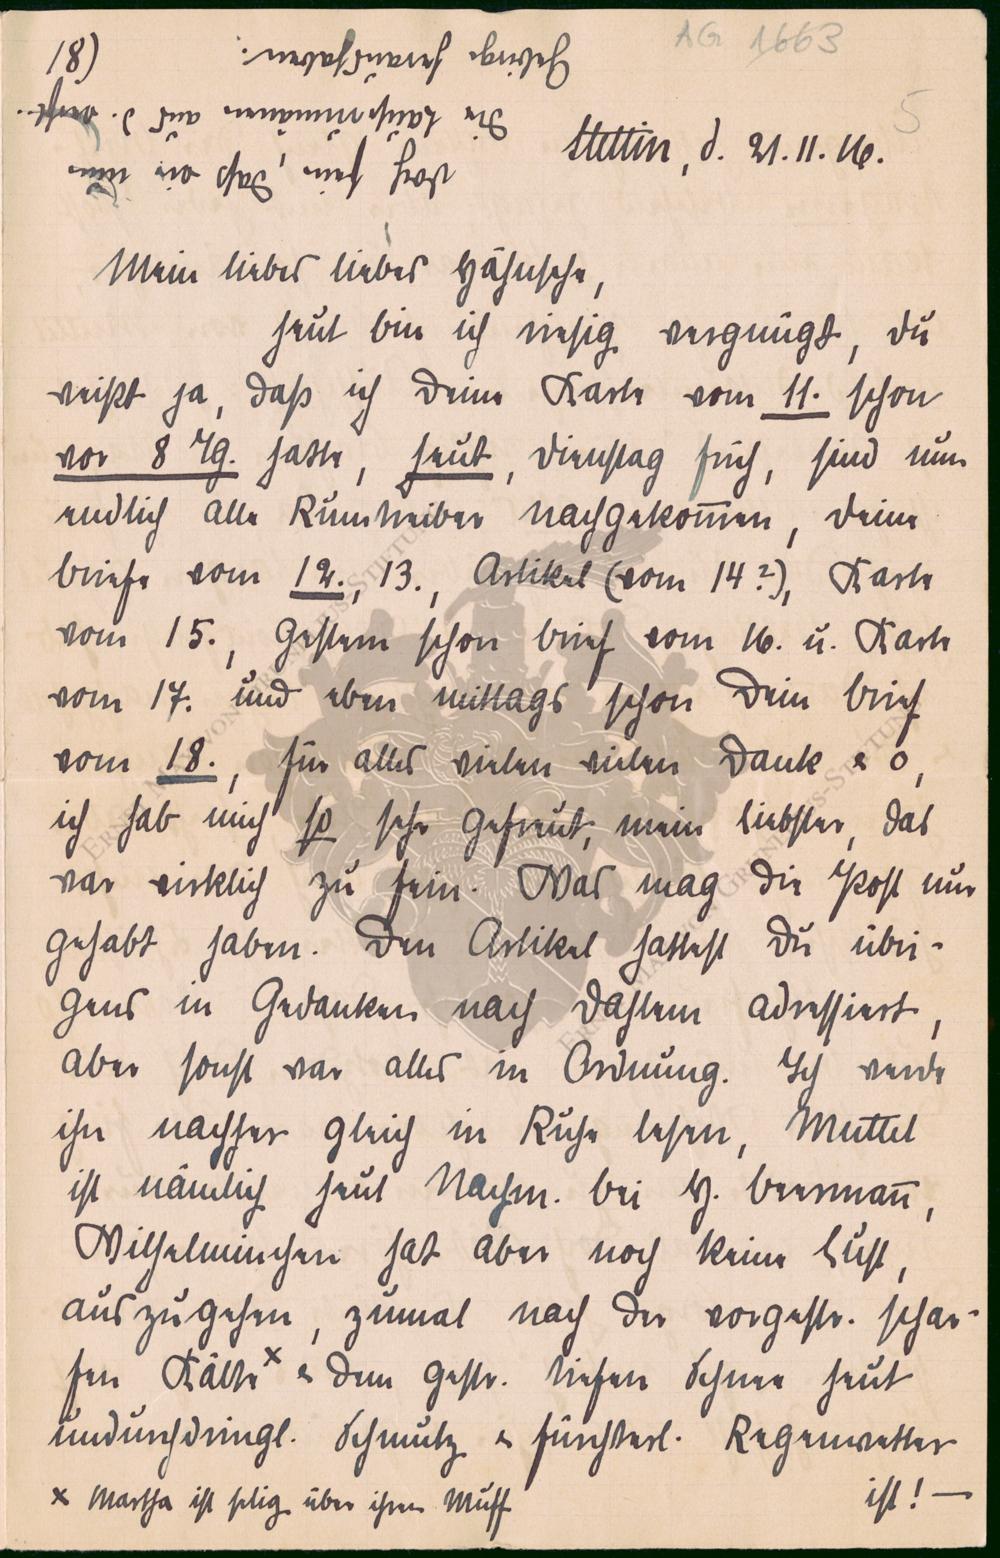 AG 1663
5
18)
doch fein, daß wir nun
die Lausommänen aus d.
Gebirge heraushaben.
Stettin, d. 21. 11. 16.
Mein liebes liebes Hähnsche,
heut bin ich riesig vergnügt, Du
weißt ja, daß ich Deine Karte vom 11. schon
vor 8 Tg. hatte, heut, Dienstag früh, sind nun
endlich alle Rumtreiber nachgekom̄en, Deine
Briefe vom 12., 13., Artikel (vom 14?), Karte
vom 15., gestern schon Brief vom 16. u. Karte
vom 17. und eben mittags schon Dein Brief
vom 18., für alles vielen vielen Dank & o,
ich hab mich so sehr gefreut, mein Liebster, das
war wirklich zu fein. Was mag die Post nur
gehabt haben. Den Artikel hattest Du übri-
gens in Gedanken nach Dahlem adressiert,
aber sonst war alles in Ordnung. Ich werde
ihn nachher gleich in Ruhe lesen, Muttel
ist nämlich heut Nachm. bei H. Beerman̄,
Wilhelminchen hat aber noch keine Lust,
auszugehen, zumal nach der vorgestr. schar-
fen Kälte x & dem gestr. tiefen Schnee heut
undurchdringl. Schmutz & fürchterl. Regenwetter
ist! —
x Martha ist selig über ihren Muff